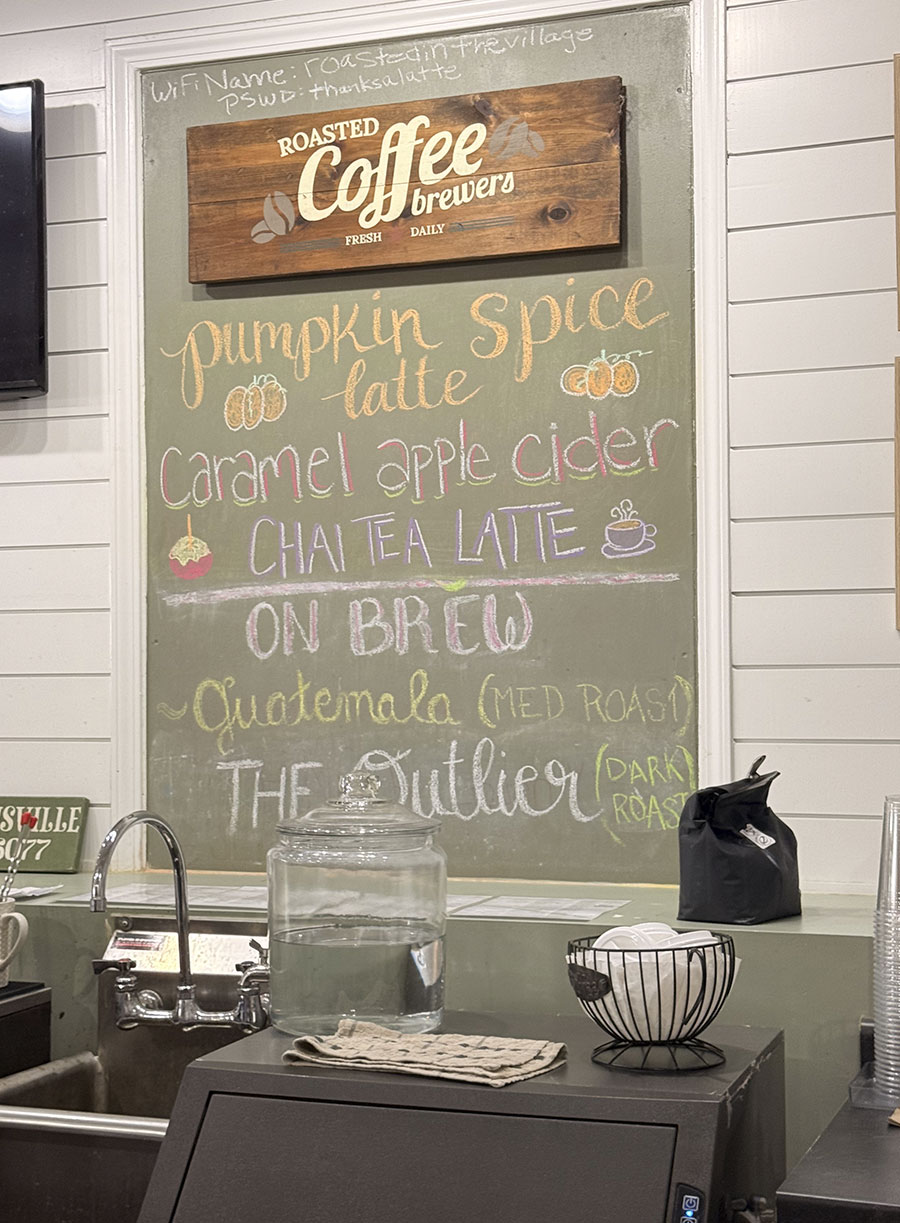 WiFi Name: roastedinthevillage
PSWD: thanksalatte
ROASTED
Coffee
brewers
FRESH DAILY
pumpkin spice
latte
Caramel apple cider
CHAI TEA LATTE
ON BREW
~Guatemala (MED ROAST)
THE Outlier (DARK
ROAST)